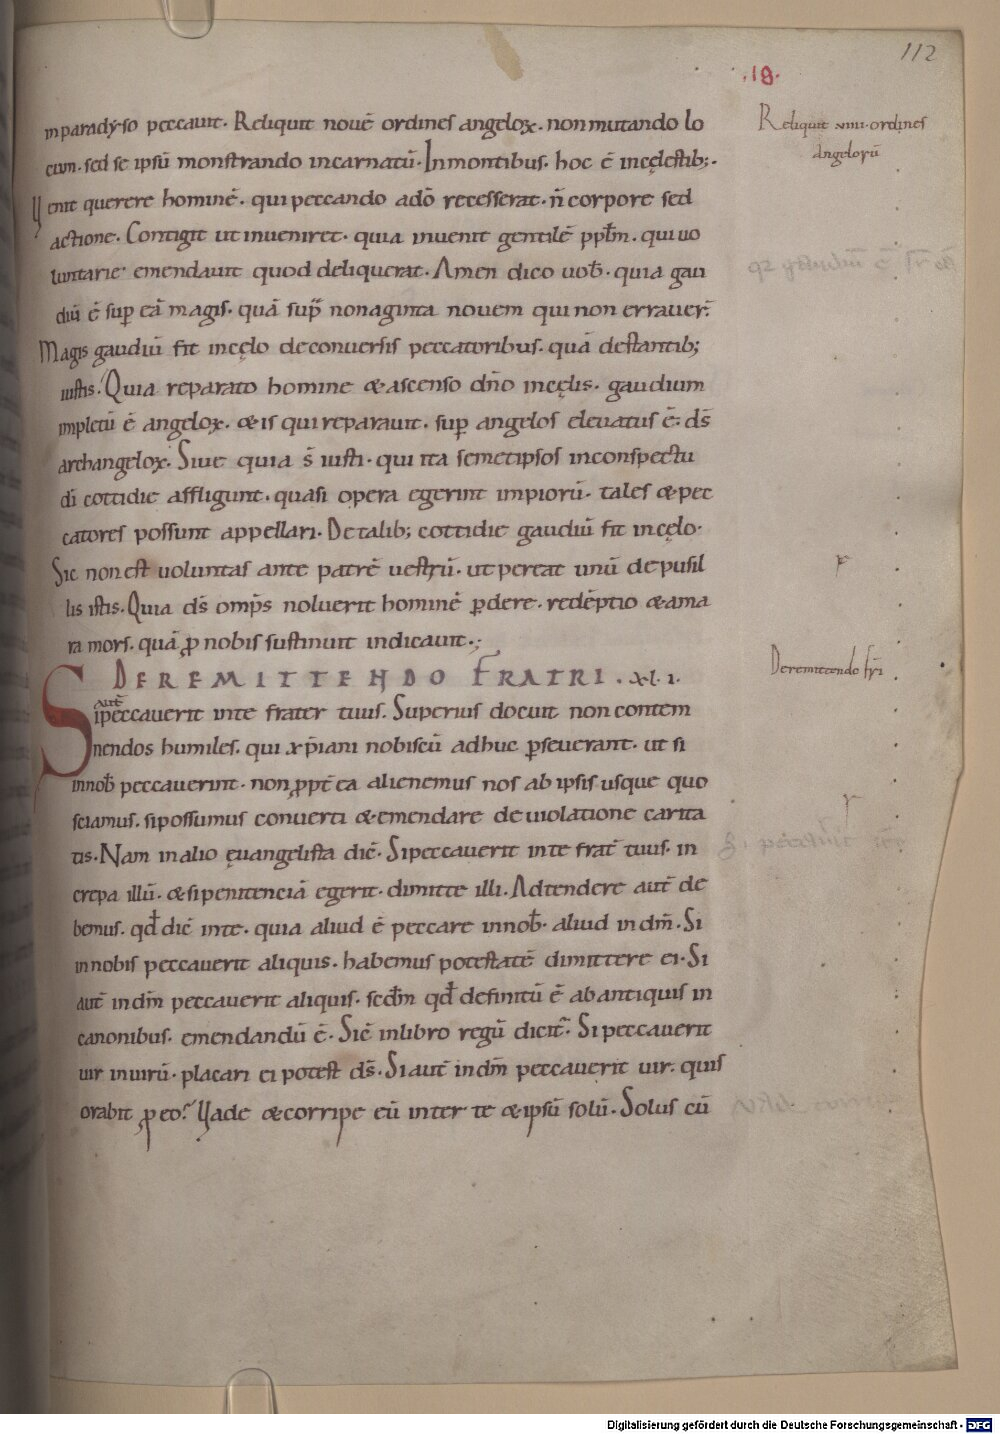 112
.19.
in parady·so peccauit· Reliquit nouē ordines angeloꝝ· non mutando lo
Reliquit uiiii· ordines
angelorū
cum· sed se ipsū monstrando incarnatū· In montibus· hoc ē in cęlestib;·
Uenit querere hominē· qui peccando a dō recesserat· n̄ corpore sed
actione· Contigit ut inueniret· quia inuenit gentilē ppłm· qui uo
luntarie emendauit quod deliquerat· Amen dico uob̄· quia gau
diū ē sup̄ eā magis· quā sup̄ nonaginta nouem qui non errauer̄·
Magis gaudiū fit in cęlo de conuersis peccatoribus· quā de stantib;
iustis· Quia reparato homine & ascenso dn̄o in cęlis· gaudium
impletū ē angeloꝝ· & is qui reparauit· sup̄ angelos eleuatus ē· ds̄
archangeloꝝ· Siue quia s̄ iusti· qui ita semetipsos in conspectu
dī cottidie affligunt· quasi opera egerint impiorū· tales & pec
catores possunt appellari· De talib; cottidie gaudiū fit in cęlo·
Sic non est uoluntas ante patrē uestrū· ut pereat unū de pusil
lis istis· Quia ds̄ omp̄s noluerit hominē ꝑdere· redēptio & ama
ra mors· quā ꝓ nobis sustinuit indicauit·;
DE REMITTENDO FRATRI· xl·i·
De remittendo fr̄i
Si autē peccauerit in te frater tuus· Superius docuit non contem
nendos humiles· qui xp̄iani nobiscū adhuc ꝑseuerant· ut si
in nob̄ peccauerint· non ꝓpt̄ ea alienemus nos ab ipsis usque quo
sciamus· si possumus conuerti & emendare de uiolatione carita
tis· Nam in alio ęuangelista dic̄· Si peccauerit in te frat̄ tuus· in
crepa illū· & si penitenciā egerit· dimitte illi· Adtendere aut̄ de
bemus· qđ dic̄ in te· quia aliud ē peccare in nob̄· aliud in dm̄· Si
in nobis peccauerit aliquis· habemus potestatē dimittere ei· Si
aut̄ in dm̄ peccauerit aliquis· scđm qđ definitū ē ab antiquis in
canonibus· emendandū ē· Sic̄ in libro regū dicit̄· Si peccauerit
uir in uirū· placari ei potest ds̄· Si aut̄ in dm̄ peccauerit uir· quis
orabit ꝓ eo? Uade & corripe eū inter te & ipsū solū· Solus cū
Digitalisierung gefördert durch die Deutsche Forschungsgemeinschaft - DFG